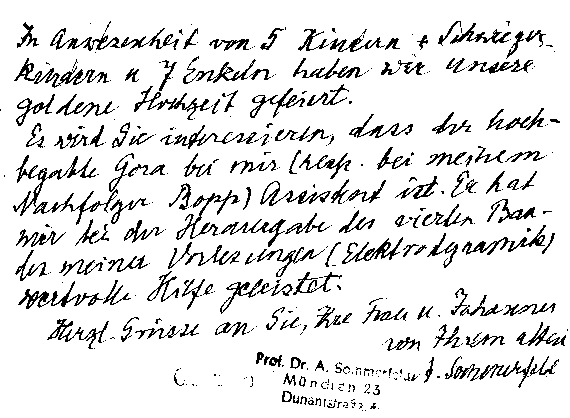 In Anwesenheit von 5 Kindern + Schwieger-
kindern u 7 Enkeln haben wir unsere
goldene Hochzeit gefeiert.
Es wird Sie interessieren, dass der hoch-
begabte Gora bei mir (resp. bei meinem
Nachfolger Bopp) Assistent ist. Er hat
mir bei der Herausgabe des vierten Ban-
des meiner Vorlesungen (Elektrodynamik)
wertvolle Hilfe geleistet.
Herzl. Grüsse an Sie, Ihre Frau u. Johannes
von Ihrem alten
A. Sommerfeld
Prof. Dr. A. Sommerfeld
München 23
Dunantstraße 6